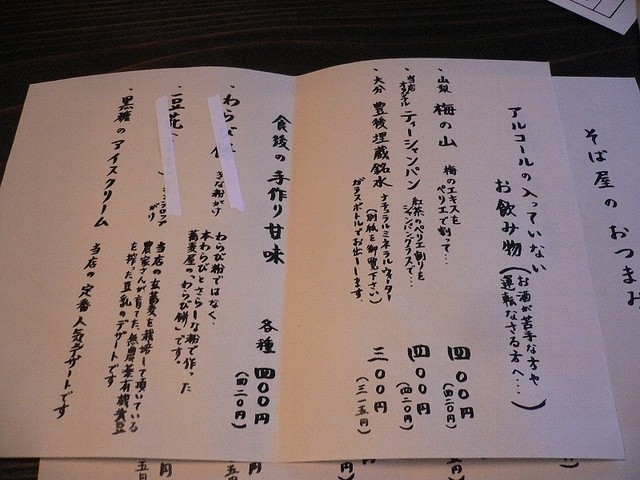 そば屋のおつまみ
アルコールの入っていない
お飲み物(お酒が苦手な方や
運転なさる方へ…)
山梨 梅の山 梅のエキスを
ペリエで割って… 四〇〇円
(四二〇円)
当店オリジナル ティーシャンパン 紅茶のペリエ割りを
シャンパングラスで… 四〇〇円
(四二〇円)
大分 豊後埋蔵銘水 ナチュラルミネラルウォーター
(別紙を御覧下さい)
ガラスボトルでお出しします 三〇〇円
(三一五円)
食後の手作り甘味 各種 四〇〇円
(四二〇円)
わらび きな粉がけ わらび粉ではなく、
本わらびとさらしな粉で作った
蕎麦屋の、「わらび餅」です。
豆花 がけ 当店の玄蕎麦を栽培して頂いている
農家さんが育てた、無農薬有機黄豆
を搾った豆乳のデザートです
黒糖のアイスクリーム 当店の定番人気デザートです